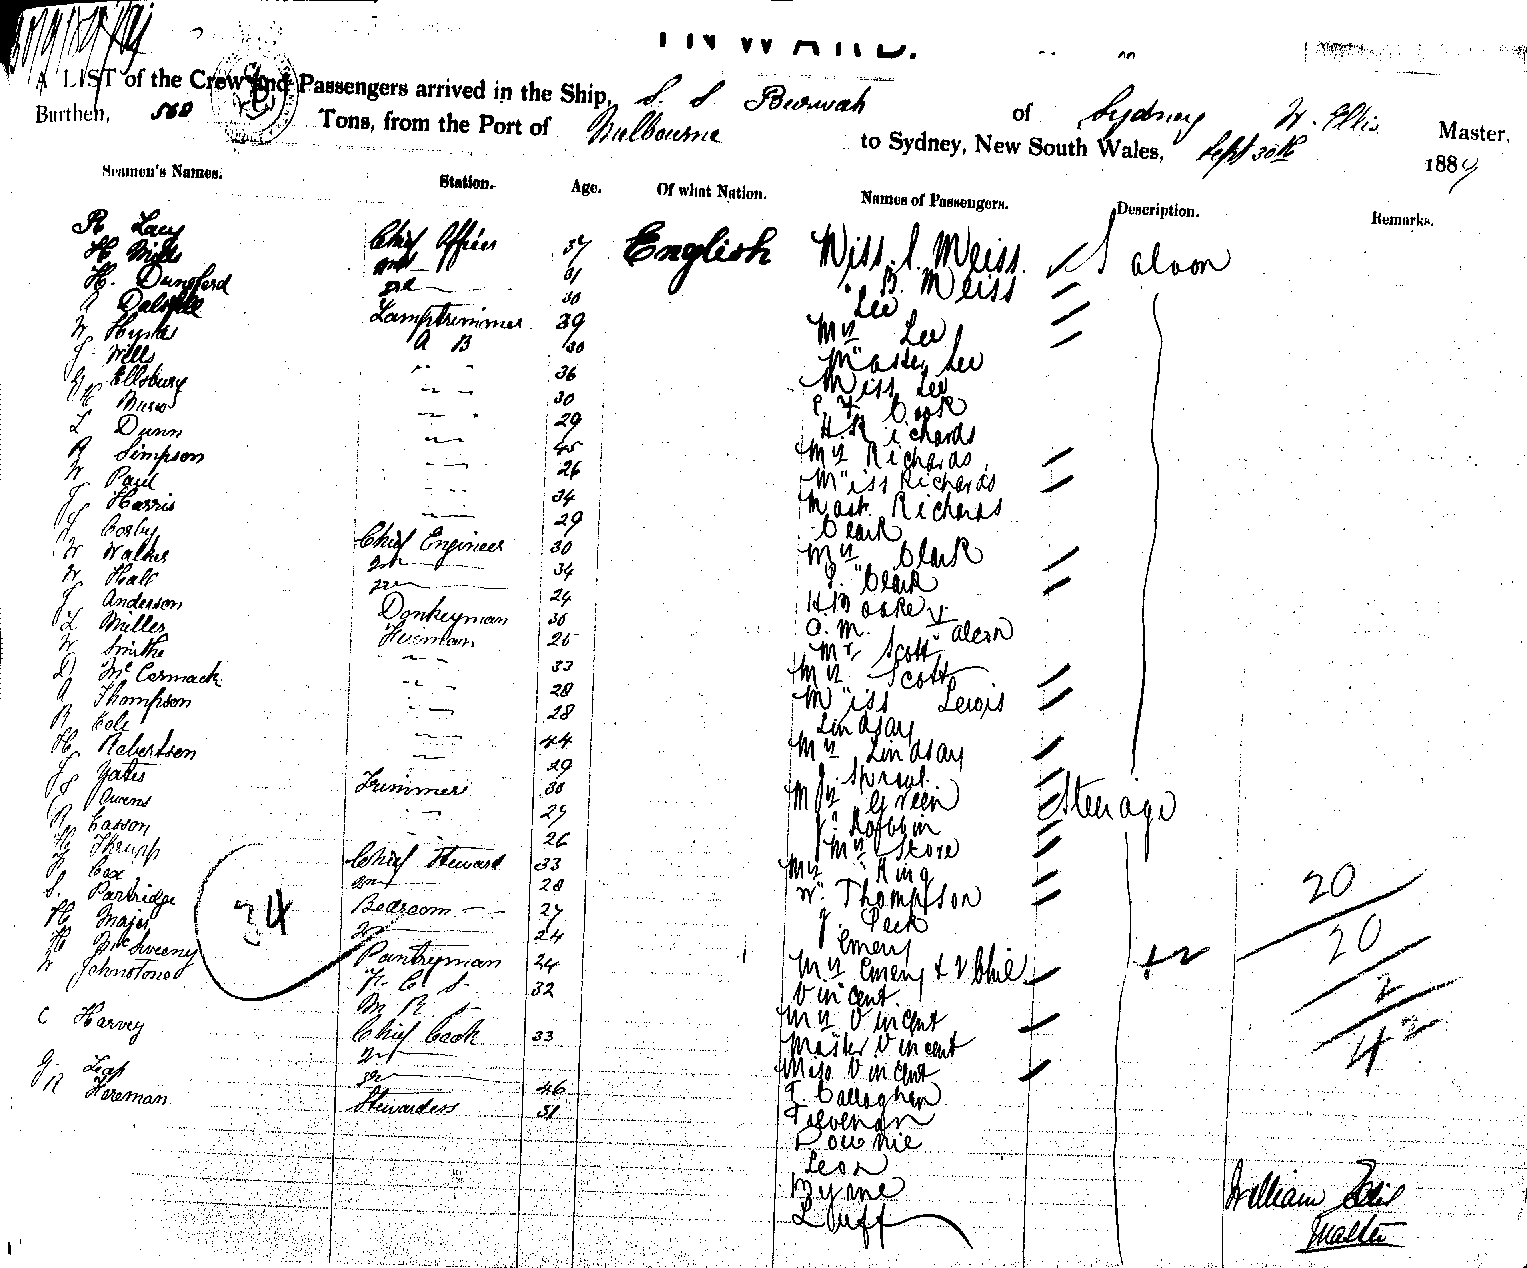 INWARD.
A LIST of the Crew and Passengers arrived in the Ship, S. S Burwah of Sydney W. Ellis Master,
Burthen, 568 Tons, from the Port of Melbourne to Sydney, New South Wales, Sept 30th 1889
Seamen's Names. Station. Age. Of what Nation. Names of Passengers. Description. Remarks.
R Lacy Chief Officer 37 English Miss. S. Meiss Saloon
H Mills 2nd 31 " B. Meiss
H. Dunsford 3rd 30 Lee
A Dalziell Lamptrimmer 39 Mrs Lee
W Hynes A B 30 Master Lee
J Wells " " 36 Miss Lee
Ellsbury " " 30 Cook
H Burns " " 29 H. Richards
L Dunn " " 45 Mrs Richards
R Simpson " " 26 Miss Richards
W Paul " " 34 Mast. Richards
J Harris " " 29 Clark
J Cosby Chief Engineer 30 Mrs Clark
W Walker 2nd 34 " Clark
W Hall 3rd 24
J Anderson Donkeyman 30
L Miller Fireman 25 Mr Scott
W Smith " " 33 Mrs Scott
D McCormack " " 28 Miss Lewis
A Thompson " " 28 Lindsay
R Cole " " 44 Mrs Lindsay
H Robertson " " 29 J. Sproul
J Yates Trimmer 30 Mrs Green Steerage
J Owens " " 27
R Casson 26 Mrs Stone
H Thrupp Chief Steward 33 Mrs King
F Cox 2nd 28 W. Thompson
S. Partridge Bedroom 27 J. Peck
H Major 2nd 24 Emery
H McSweeny Pantryman 24 Mrs Emery & 2 Chil
W Johnstone F. C. S. 32 Vincent
M R S Mrs Vincent
C Harvey Chief Cook 33 Master Vincent
2nd Miss Vincent
3rd 46 T. Callaghan
R Foreman Stewardess 51
Downie
Leon
Byrne
Duff
34
+2
20
20
2
42
William Ellis
Master